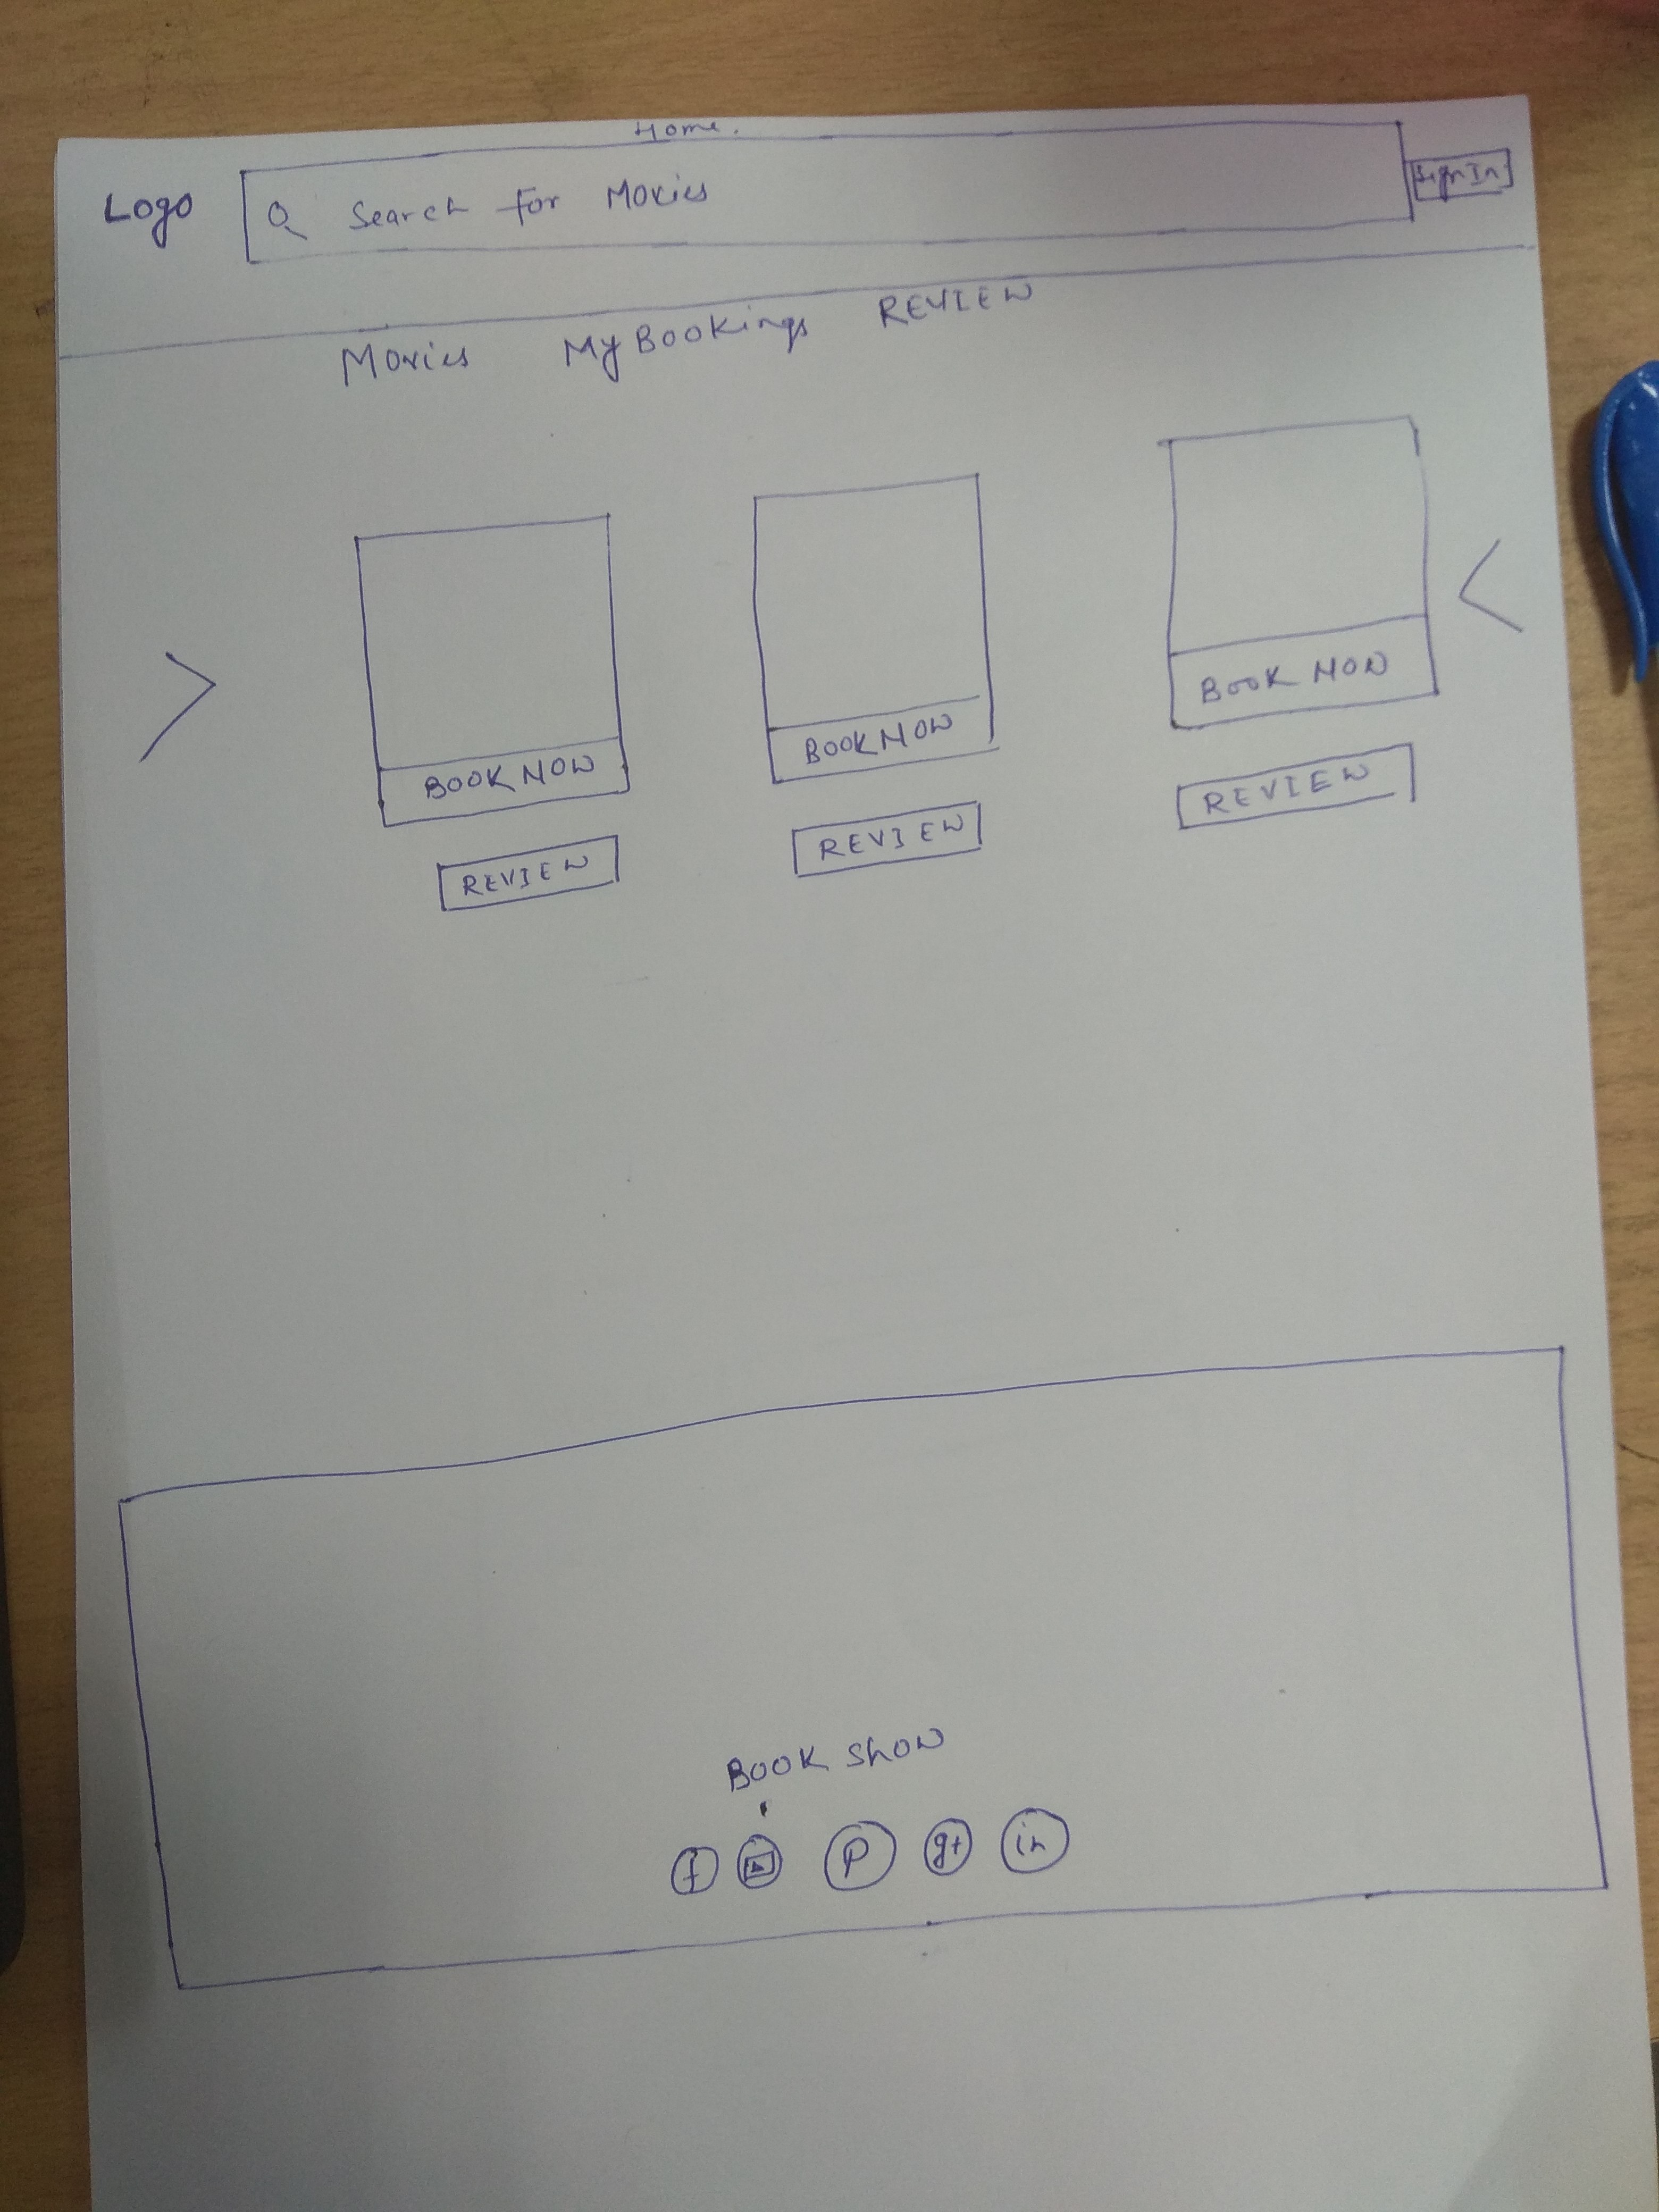 Home.
Logo
Search for Movies
Sign In
Movies MyBookings REVIEW
BOOK NOW
BOOK NOW
BOOK NOW
REVIEW
REVIEW
REVIEW
BOOK ShOW
f
P g+ in